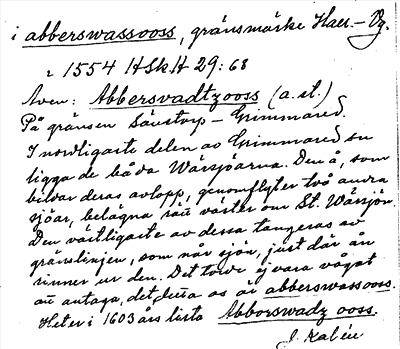 i abberswassooss, gränsmärke Hall.–Vg.
r 1554 HSkH 29:68
Även: Abbersvadtzooss (a. st.)
På gränsen Sävstorp – Grimmared.
I nordligaste delen av Grimmared sn
ligga de båda Wärsjöarna. Den å, som
bildar deras avlopp, genomflyter två andra
sjöar, belägna rätt väster om St. Wärsjön.
Den västligaste av dessa tangeras av
gränslinjen, som når sjön, just där ån
rinner ur den. Det torde ej vara vågat
att antaga, det detta os är abberswassooss.
Heter i 1603 års lista Abborswadz ooss.
J. Kalén